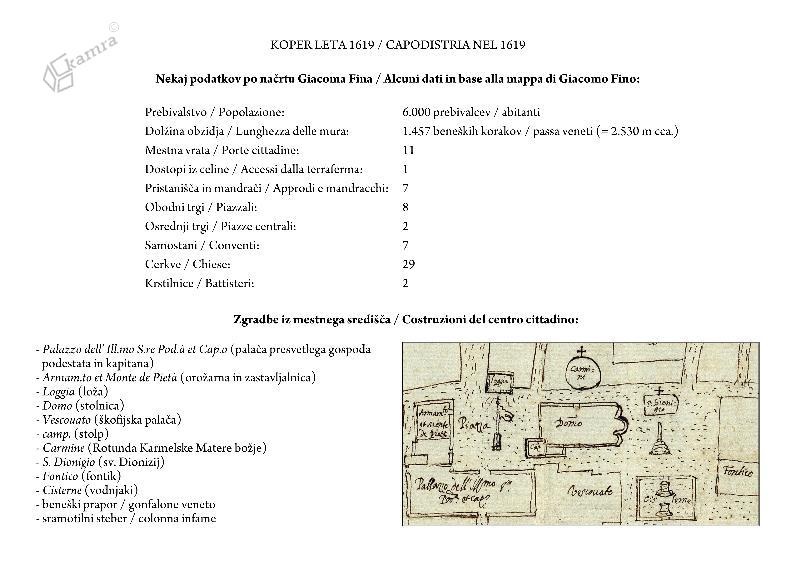 ©
kamra
KOPER LETA 1619 / CAPODISTRIA NEL 1619
Nekaj podatkov po načrtu Giacoma Fina / Alcuni dati in base alla mappa di Giacomo Fino:
Prebivalstvo / Popolazione: 6.000 prebivalcev / abitanti
Dolžina obzidja / Lunghezza delle mura: 1.457 beneških korakov / passa veneti (= 2.530 m cca.)
Mestna vrata / Porte cittadine: 11
Dostopi iz celine / Accessi dalla terraferma: 1
Pristanišča in mandrači / Approdi e mandracchi: 7
Obodni trgi / Piazzali: 8
Osrednji trgi / Piazze centrali: 2
Samostani / Conventi: 7
Cerkve / Chiese: 29
Krstilnice / Battisteri: 2
Zgradbe iz mestnega središča / Costruzioni del centro cittadino:
- Palazzo dell' Ill.mo S.re Pod.à et Cap.o (palača presvetlega gospoda
podestata in kapitana)
- Armam.to et Monte de Pietà (orožarna in zastavljalnica)
- Loggia (loža)
- Domo (stolnica)
- Vescouato (škofijska palača)
- camp. (stolp)
- Carmine (Rotunda Karmelske Matere božje)
- S. Dionigio (sv. Dionizij)
- Fontico (fontik)
- Cisterne (vodnjaki)
- beneški prapor / gonfalone veneto
- sramotilni steber / colonna infame
Carmi-
ne
Piazza
Domo
Fontico
Vescouato